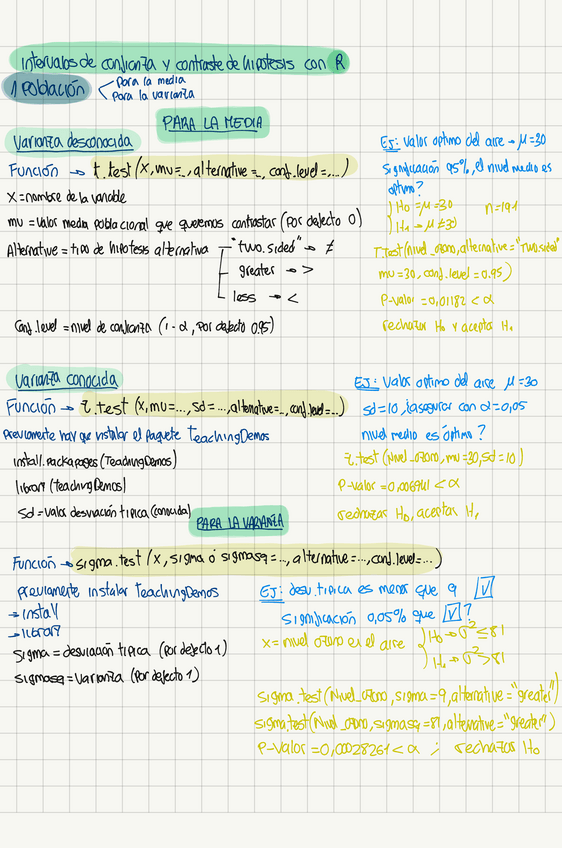 Intervalos de confianza y contraste de hipotesis con R
1 Población
Para la media
Para la varianza
PARA LA MEDIA
Varianza desconocida
Función → t.test (x, mu=_, alternative=_, conf.level=...)
X = nombre de la variable
mu = valor media poblacional que queremos contrastar (Por defecto 0)
Alternative = tipo de hipotesis alternativa
"two.sided" → ≠
greater → >
less → <
Conf.level = nivel de confianza (1-α, por defecto 0.95)
Ej: Valor optimo del aire → μ=30
significación 95%, el nivel medio es
optimo?
H₀ = μ=30 n=191
H₁ → μ≠30
T.test(nivel_ozono, alternative="two.sided"
mu=30, conf.level=0.95)
P-valor = 0,01182 < α
rechazar H₀ y acepta H₁
Varianza conocida
Función → z.test (x, mu=..., sd=..., alternative=_, conf.level=...)
Previamente hay que instalar el paquete TeachingDemos
install.packapages (TeachingDemos)
library (TeachingDemos)
sd = valor desviación tipica (conocida)
Ej: Valor optimo del aire μ=30
sd=10, ¿asegurar con α=0,05
nivel medio es óptimo?
z.test (Nivel_ozono, mu=30, sd=10)
P-valor = 0,006941 < α
rechazar H₀, aceptar H₁
PARA LA VARIANZA
Función → sigma.test (x, sigma ó sigmasq=..., alternative=..., conf.level=...)
Previamente instalar TeachingDemos
→ install
→ library
sigma = desviación tipica (Por defecto 1)
sigmasq = varianza (Por defecto 1)
Ej: desv. tipica es menor que 9 V
significación 0,05% que V?
X = nivel ozono en el aire
H₀ → σ² ≤ 81
H₁ → σ² > 81
sigma.test (Nivel_ozono, sigma=9, alternative="greater")
sigma.test (Nivel_ozono, sigmasq=81, alternative="greater")
P-valor = 0,00028261 < α ; rechazar H₀